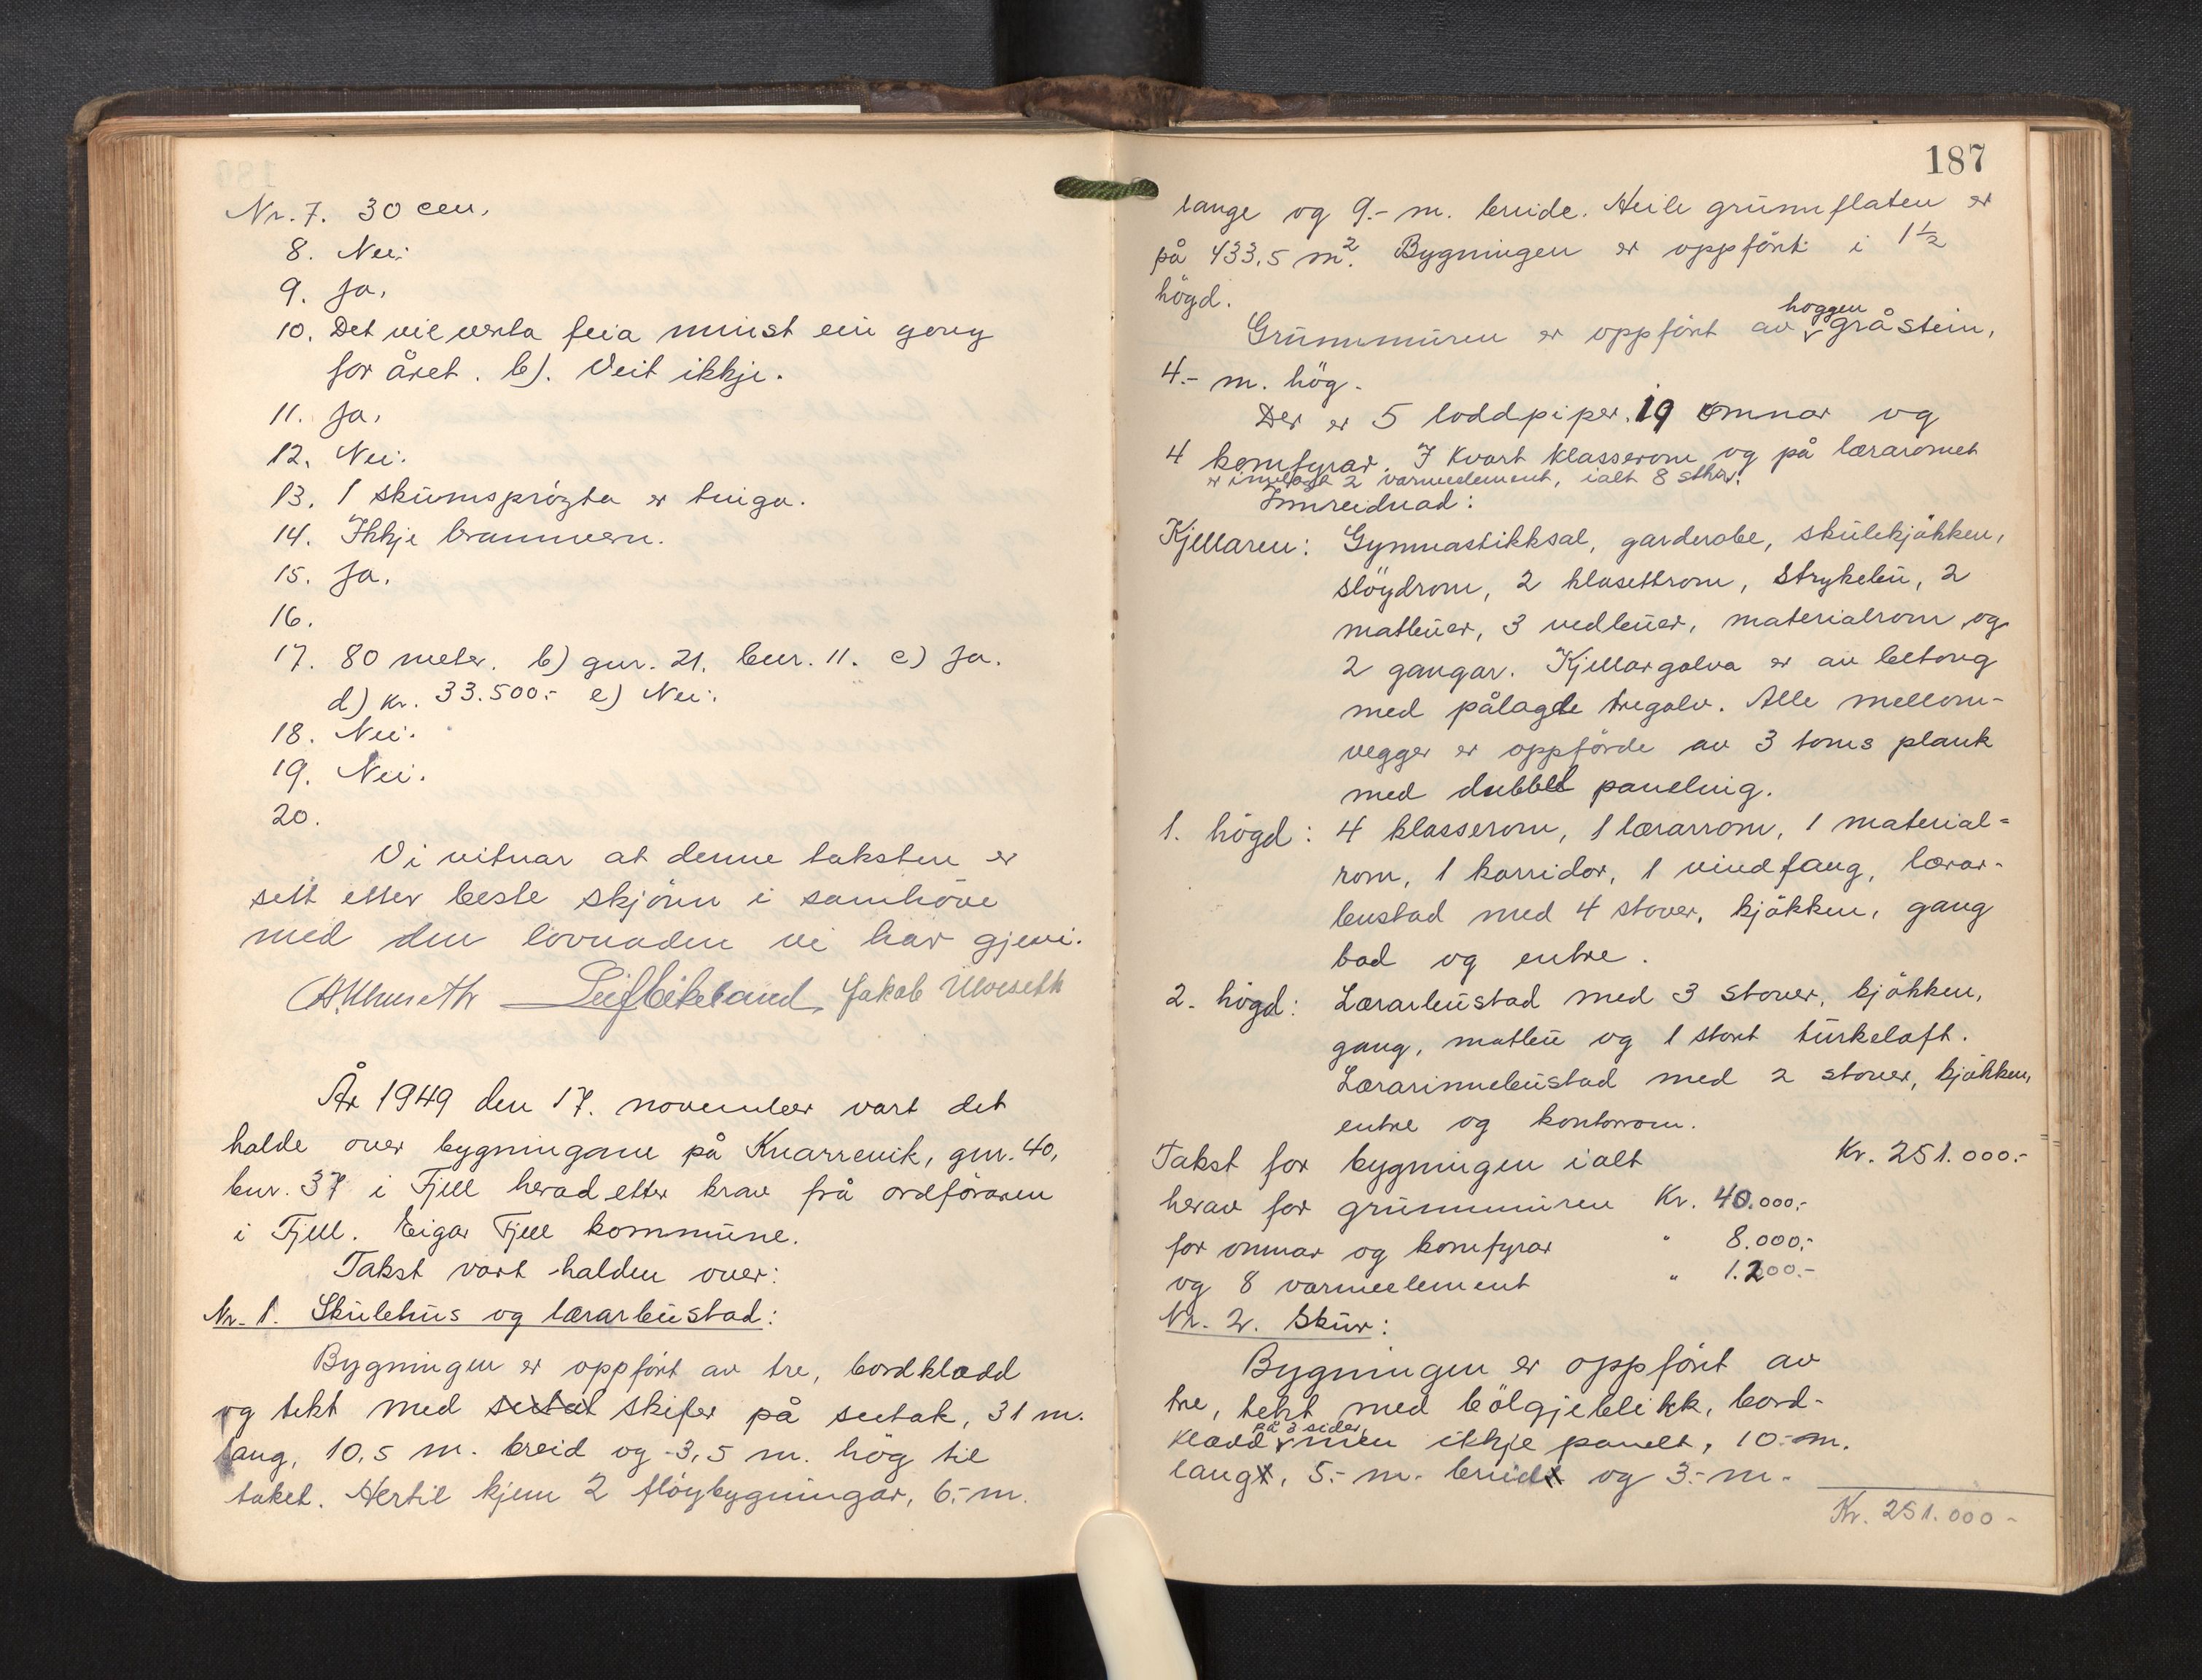 Nr. 7. 30 cm.
8. Nei.
9. Ja.
10. Det vil verta feia minst ein gong
for året. b). Veit ikkje.
11. Ja.
12. Nei.
13. 1 skumsprøyta er tinga.
14. Ikkje brannvern.
15. Ja.
16.
17. 80 meter. b) gnr. 21. bnr. 11. c) Ja.
d) kr. 33.500:- e) Nei.
18. Nei.
19. Nei.
20.
Vi vitnar at denne taksten er
sett etter beste skjönn i samhöve
med den lovnaden vi har gjevi.
Leif Eikeland, Jakob Ulveseth
År 1949 den 17. november vart det
halde over bygningane på Knarrevik, gnr. 40,
bnr. 37 i Fjell herad etter krav frå ordföraren
i Fjell. Eigar Fjell kommune.
Takst vart halden over:
Nr. 1. Skulehus og lærarbustad:
Bygningen er oppfört av tre, bordkledd
og tekt med skifer på sutak, 31 m.
lang, 10,5 m. breid og 3,5 m. hög til
taket. Hertil kjem 2 flöybygningar, 6.- m.
187
lange og 9.- m. breide. Heile grunnflaten er
på 433,5 m². Bygningen er oppfört i 1½
högd.
Grunnmuren er oppfört av hoggen gråstein,
4.- m. hög.
Der er 5 loddpiper. 19 omnar og
4 komfyrar. I kvart klasserom og på lærarromet
er innlagt 2 varmeelement, ialt 8 stkr.
Innreidnad:
Kjellaren: Gymnastikksal, garderobe, skulekjökken,
slöydrom, 2 klosettrom, strykebu, 2
matbuer, 3 vedbuer, materialrom og
2 gangar. Kjellargolva er av betong
med pålagde tregolv. Alle mellom-
vegger er oppförde av 3 toms plank
med dubbel paneling.
1. högd: 4 klasserom, 1 lærarrom, 1 material-
rom, 1 korridor, 1 vindfang, lærar-
bustad med 4 stover, kjökken, gang
bad og entre.
2. högd: Lærarbustad med 3 stover, kjökken,
gang, matbu og 1 stort turkeloft.
Lærarinnebustad med 2 stover, kjökken,
entre og kontorrom.
Takst for bygningen ialt Kr. 251.000:-
herav for grunnmuren Kr. 40.000:-
for omnar og komfyrar " 8.000:-
og 8 varmeelement " 1.200.-
Nr. 2. Skur:
Bygningen er oppfört av
tre, tekt med bölgjeblikk, bord-
kledd på 3 sider, men ikkje panelt, 10.- m.
lang, 5.- m. breid og 3.- m.
Kr. 251.000-